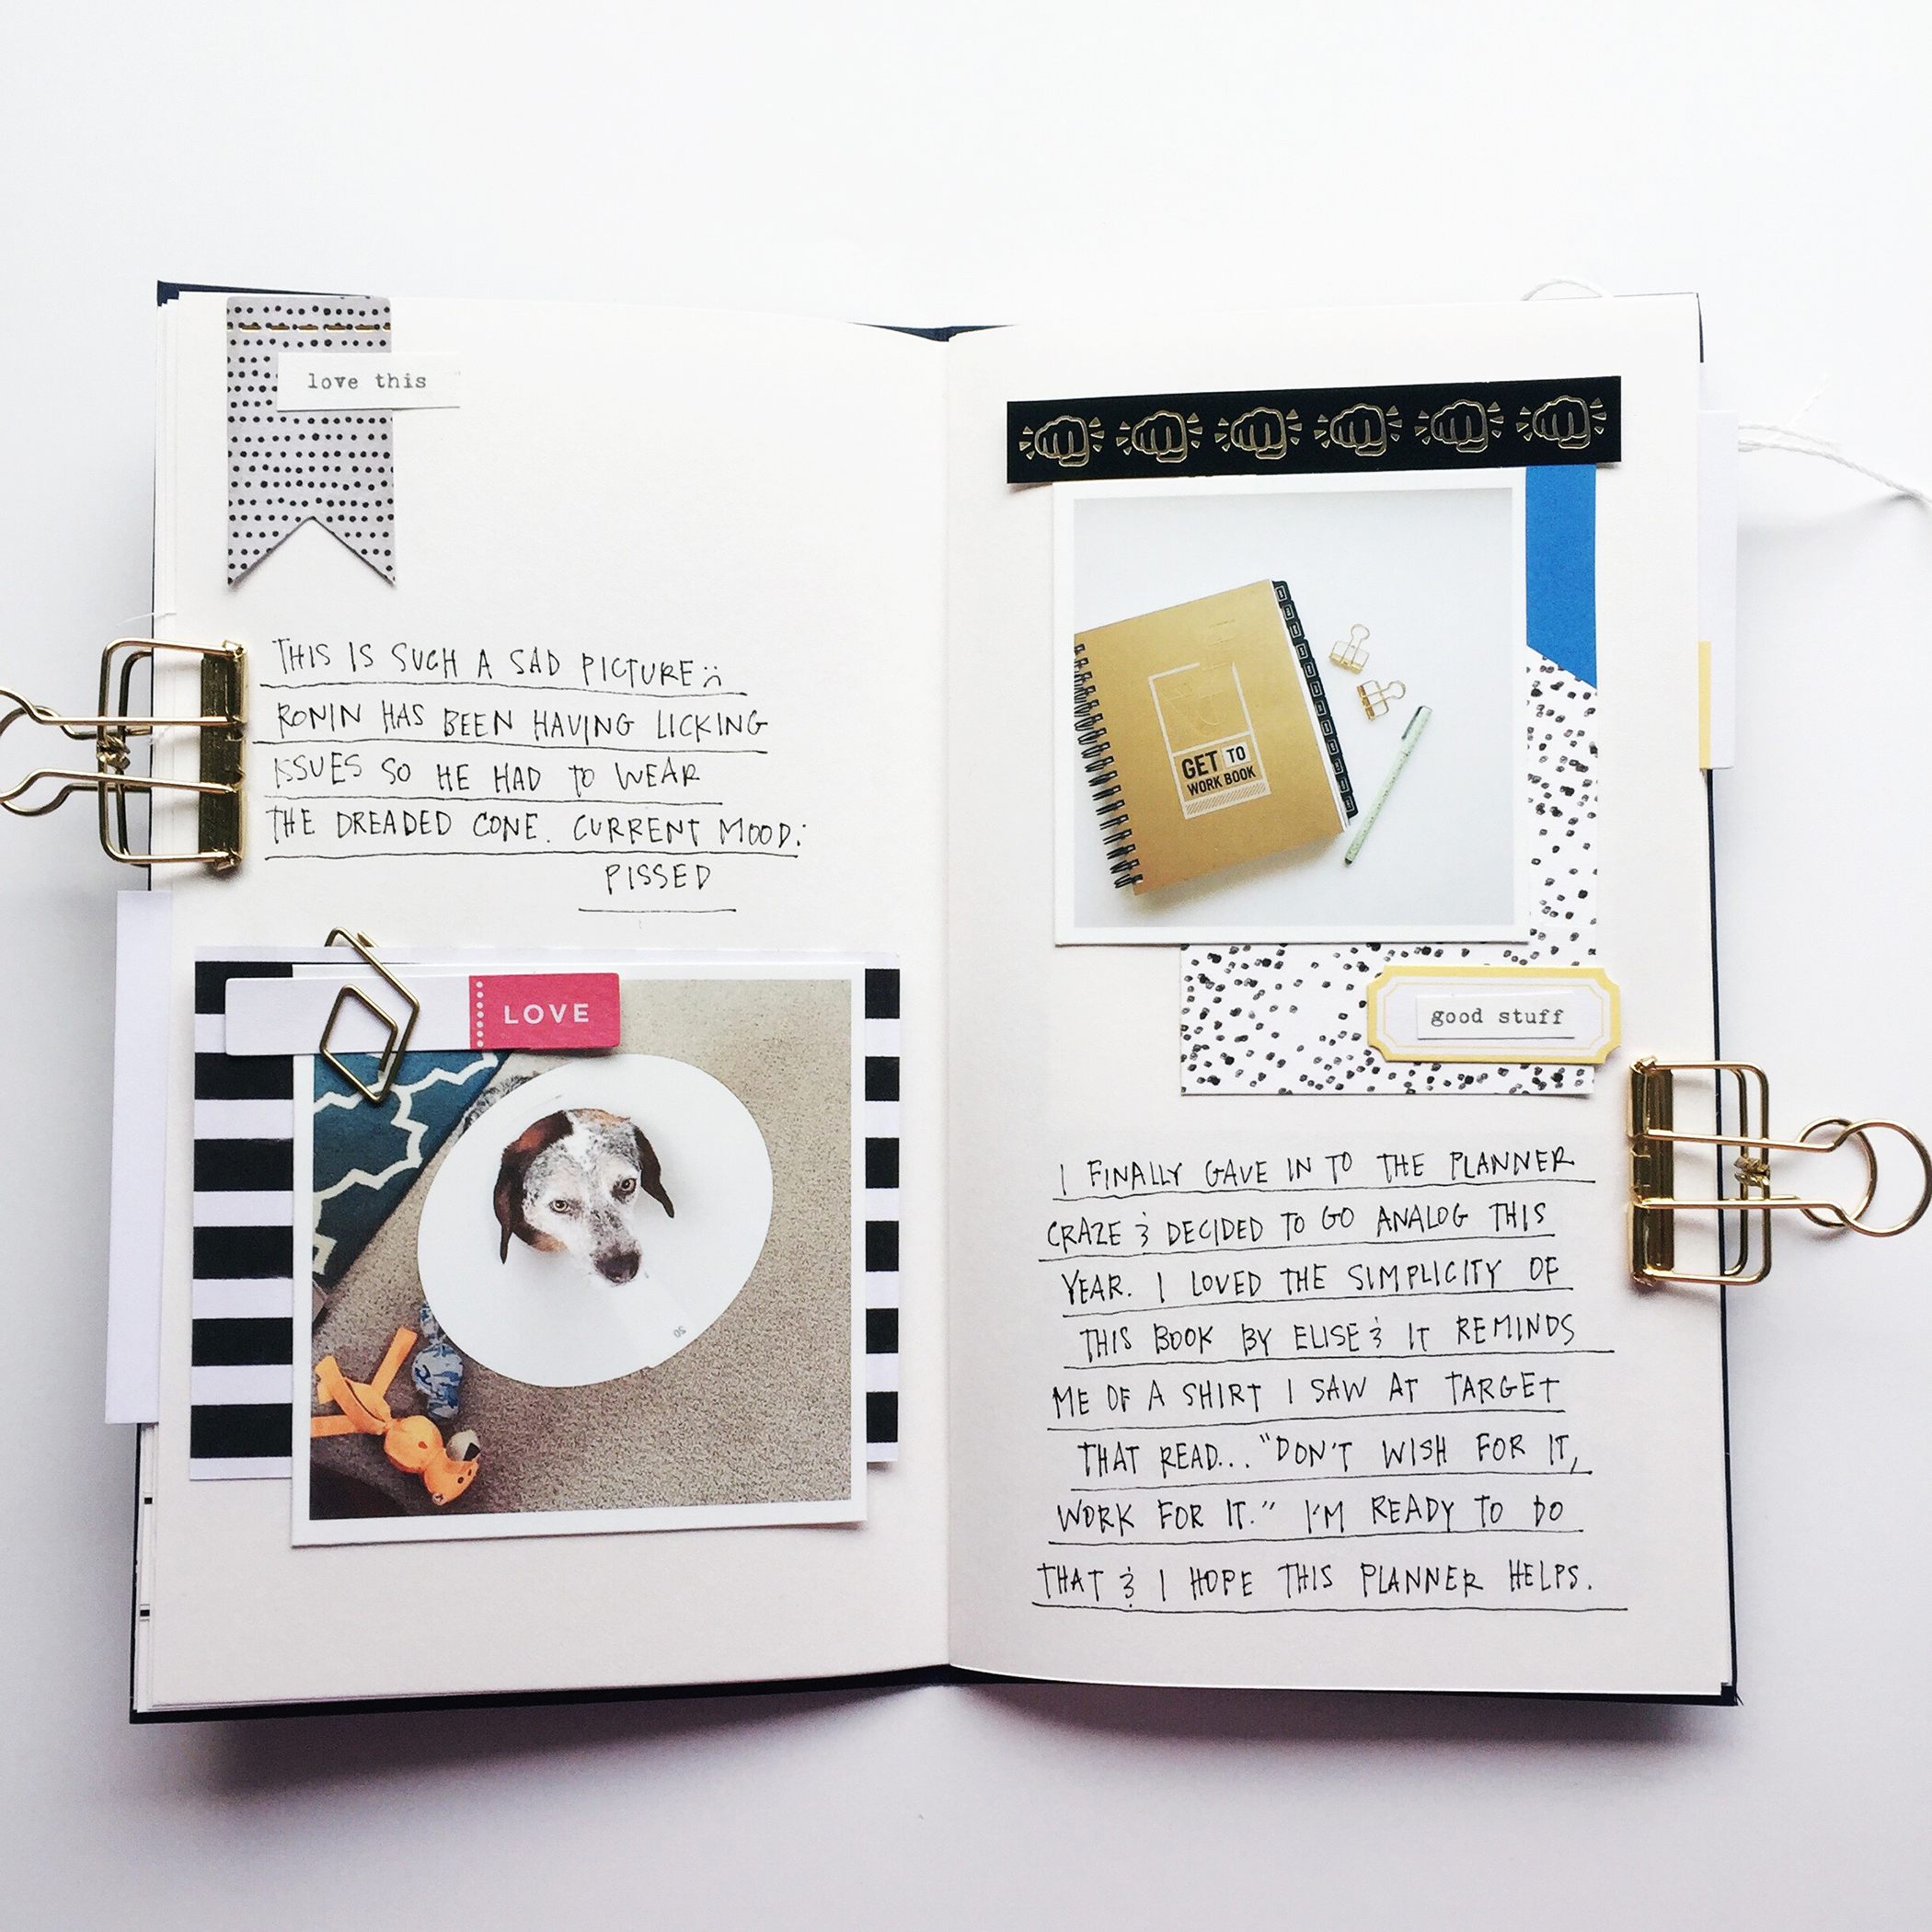 love this
THIS IS SUCH A SAD PICTURE :(
RONIN HAS BEEN HAVING LICKING
ISSUES SO HE HAD TO WEAR
THE DREADED CONE. CURRENT MOOD:
PISSED
LOVE
20
GET TO
WORK BOOK
good stuff
I FINALLY GAVE IN TO THE PLANNER
CRAZE & DECIDED TO GO ANALOG THIS
YEAR. I LOVED THE SIMPLICITY OF
THIS BOOK BY ELISE & IT REMINDS
ME OF A SHIRT I SAW AT TARGET
THAT READ... "DON'T WISH FOR IT,
WORK FOR IT." I'M READY TO DO
THAT & I HOPE THIS PLANNER HELPS.